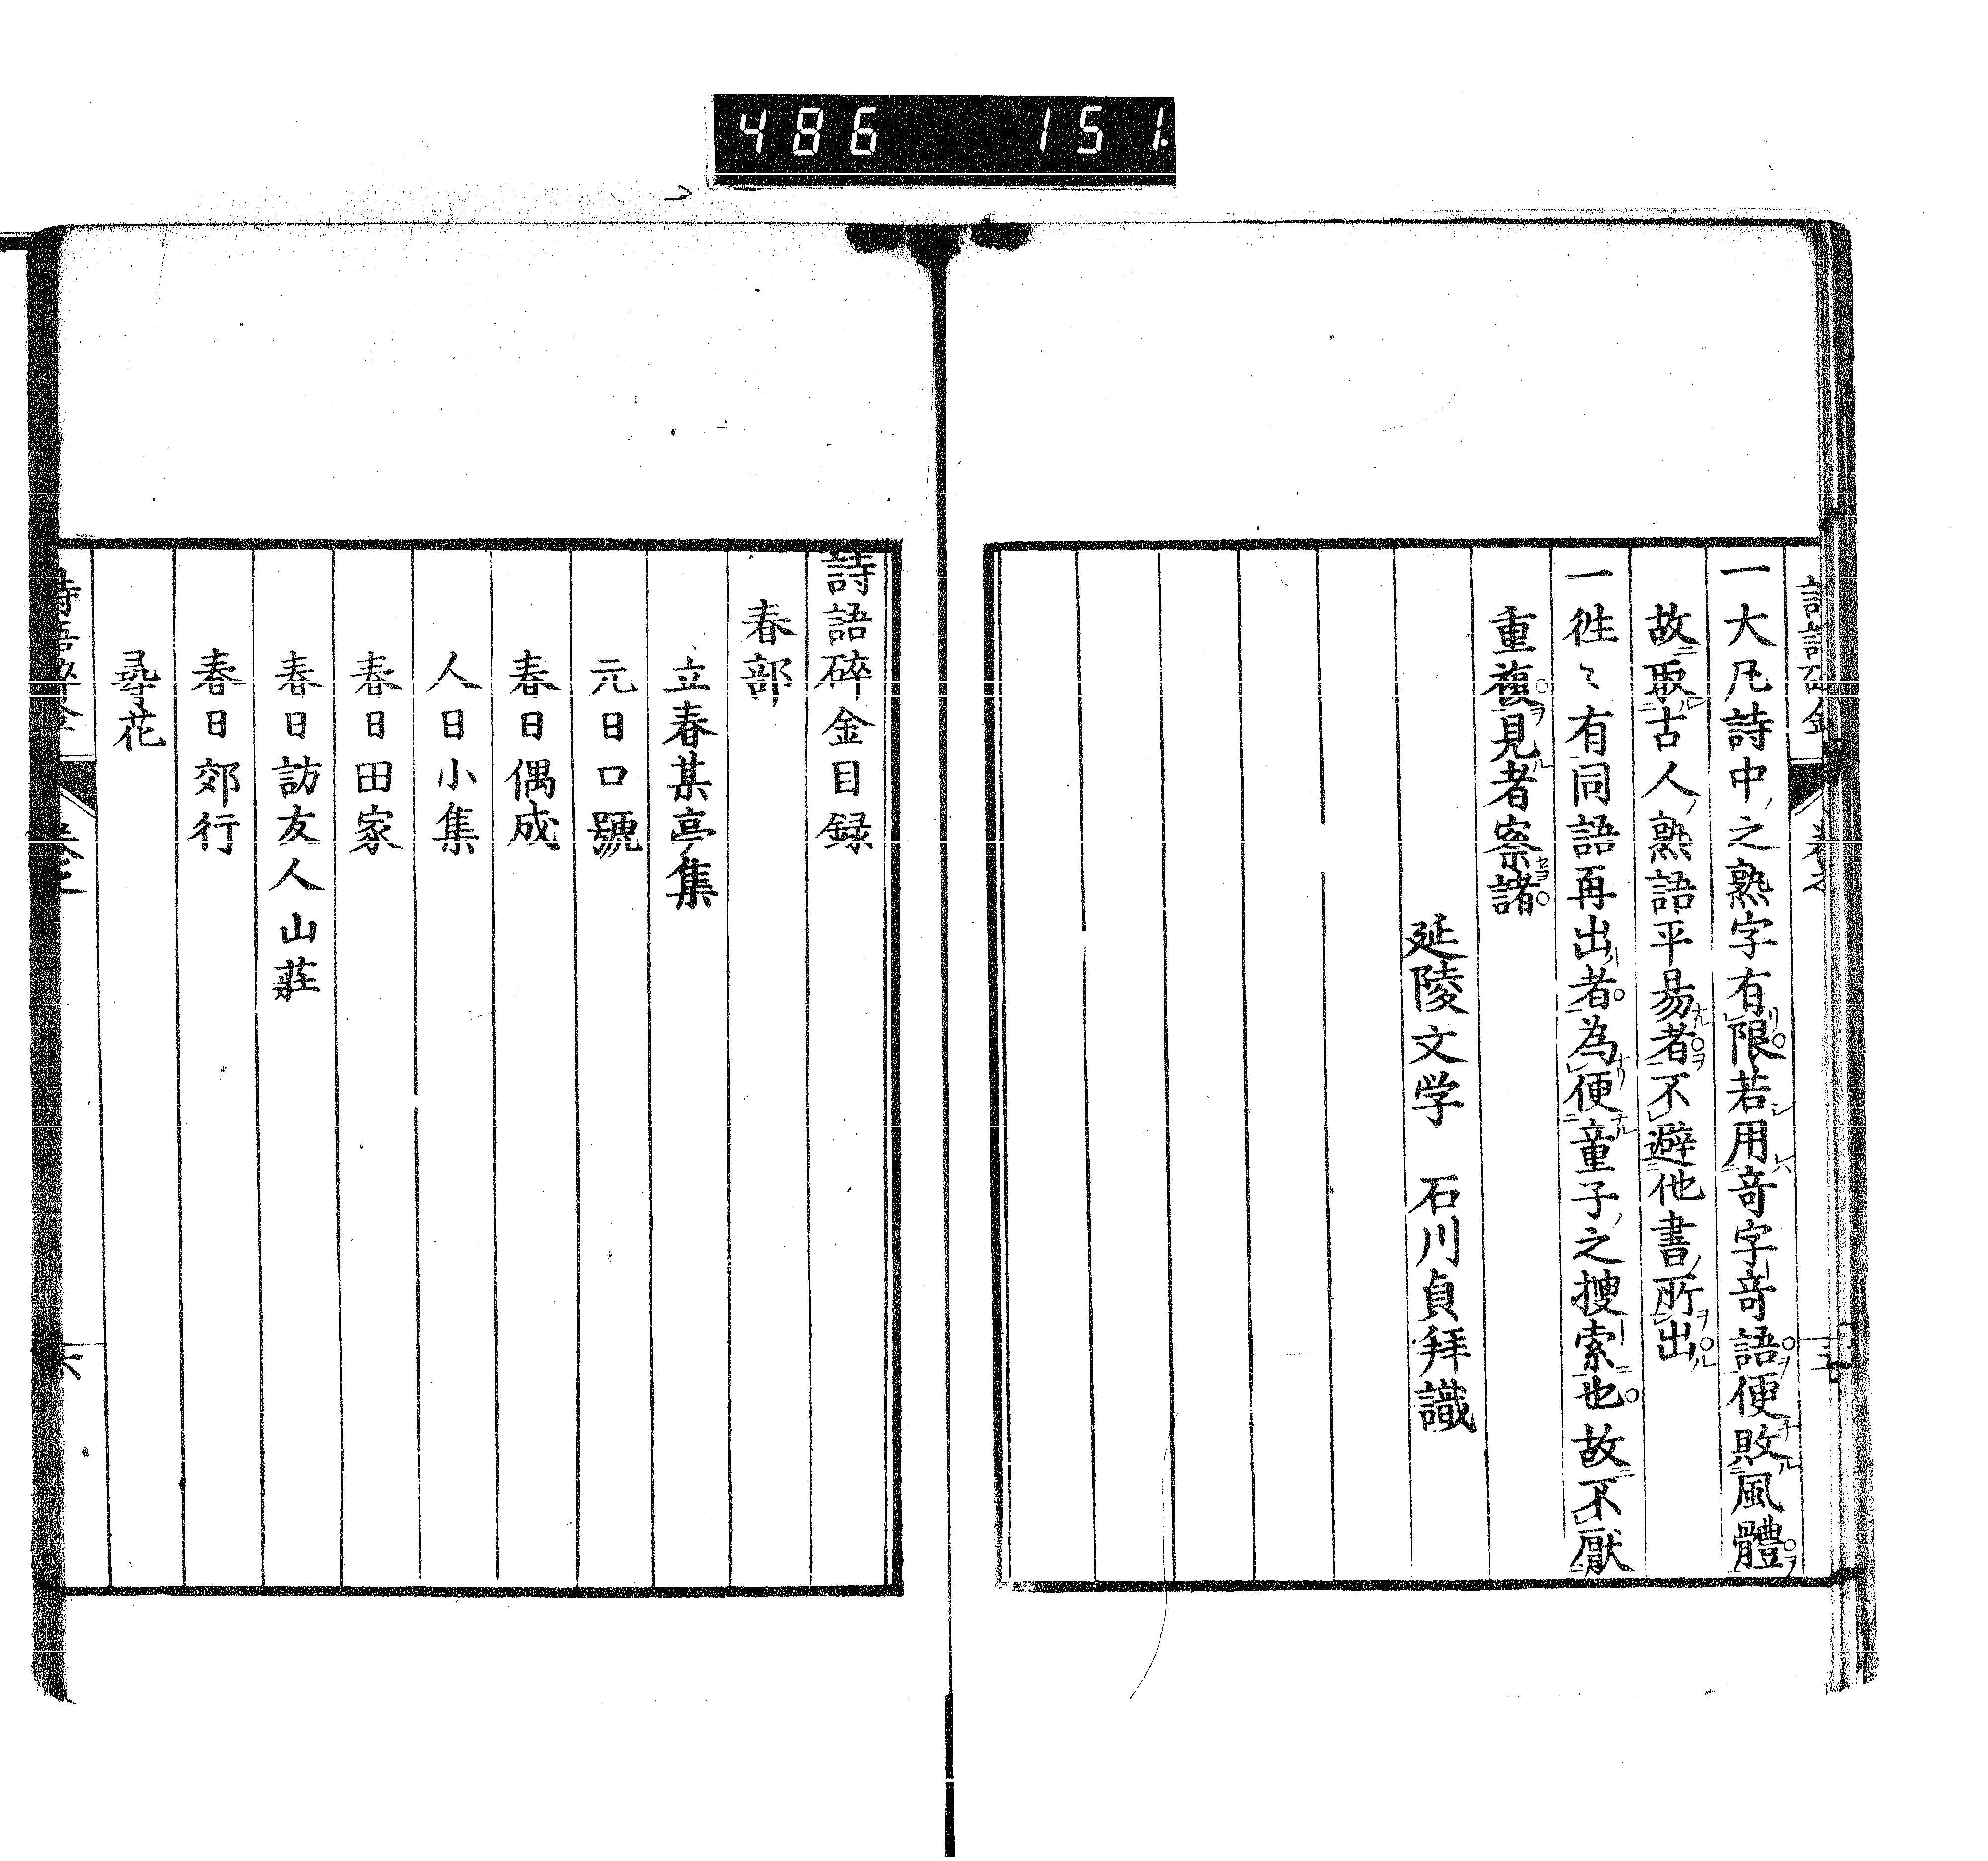 486 151.
一大凡詩中之熟字有限若用竒字竒語便敗風體
故取古人熟語平易者不避他書所出
一徃〻有同語再出者為便童子之搜索也故不厭
重複見者察諸
延陵文学 石川貞拜識
詩語碎金目録
春部
立春某亭集
元日口號
春日偶成
人日小集
春日田家
春日訪友人山莊
春日郊行
尋花
六